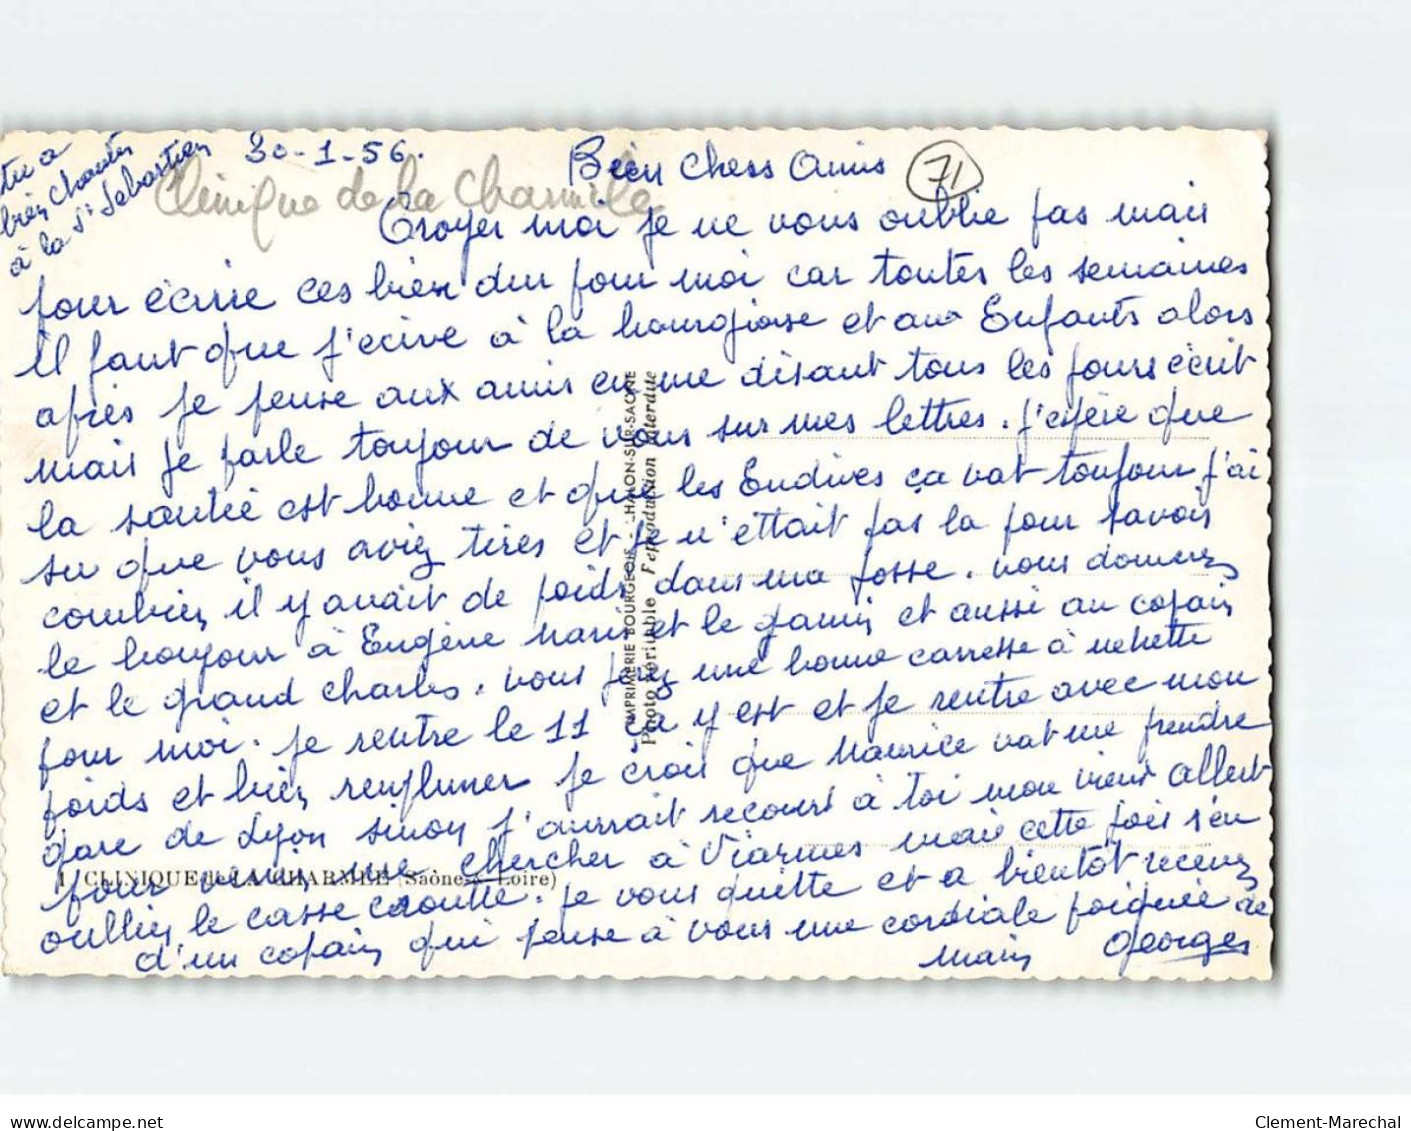 tu a
bien chanter
à la St Sebastien
30-1-56.
Clinique de la Charmée
Bien chers amis
71
Croyer moi je ne vous oublie pas mais
pour écrire ces bien dur pour moi car toutes les semaines
il faut que j'ecive à la bourgioise et aux Enfants alors
après je pense aux amis en me disant tous les jours écrit
mais je parle toujour de vous sur mes lettres. J'espère que
la santée est bonne et que les Endives ça vat toujour j'ai
su que vous aviez tires et je n'éttait pas la pour savois
combien il y avait de poids dans ma fosse. vous donnerez
le bonjour à Eugène Marie et le gamin et aussi au copain
et le grand charles. vous ferez une bonne carresse à nenette
pour moi. je rentre le 11 ça y est et je rentre avec mon
poids et bien renflumer je crois que Maurice vat me prendre
gare de Lyon sinon j'aurrait recourt à toi mon vieux Albert
pour venir me chercher à Viarmes mais cette fois s'en
oublier le casse croutte. je vous quitte et a bientôt recevez
d'un copain qui pense à vous une cordiale poignée de
main Georges
1. CLINIQUE DE LA CHARMÉE (Saône-&-Loire)
IMPRIMERIE BOURGEOIS - CHALON-SUR-SAONE
Photo véritable Reproduction interdite
delcampe.net
Clement-Marechal